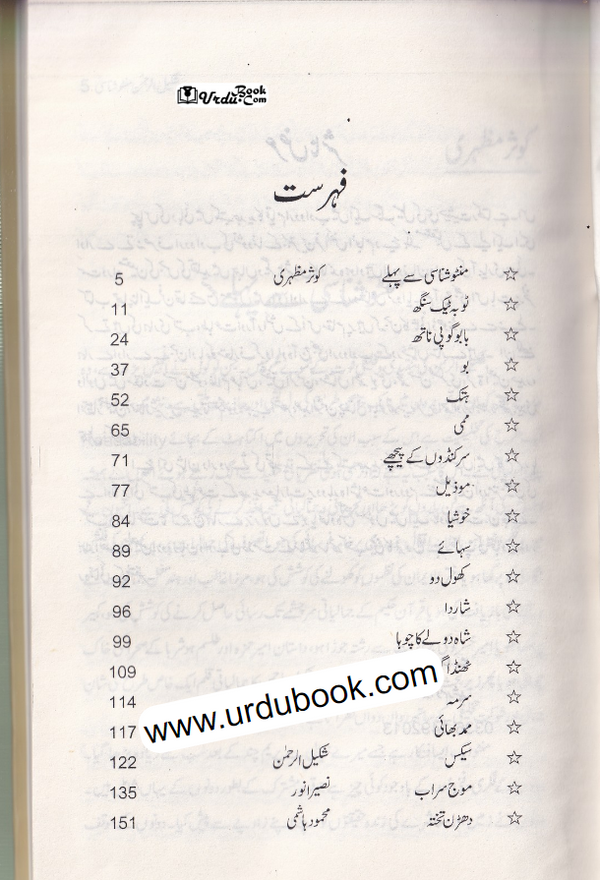 UrduBook.Com
فہرست
☆ منٹو شناسی سے پہلے کوثر مظہری 5
☆ ٹوبہ ٹیک سنگھ 11
☆ بابو گوپی ناتھ 24
☆ بو 37
☆ ہتک 52
☆ ممی 65
☆ سرکنڈوں کے پیچھے 71
☆ موذیل 77
☆ خوشیا 84
☆ سہائے 89
☆ کھول دو 92
☆ شاردا 96
☆ شاہ دولے کا چوہا 99
☆ ٹھنڈا 109
☆ سرمہ 114
☆ ممد بھائی 117
☆ سیکس شکیل الرحمٰن 122
☆ موج سراب نصیر انور 135
☆ دھڑن تختہ محمود ہاشمی 151
www.urdubook.com